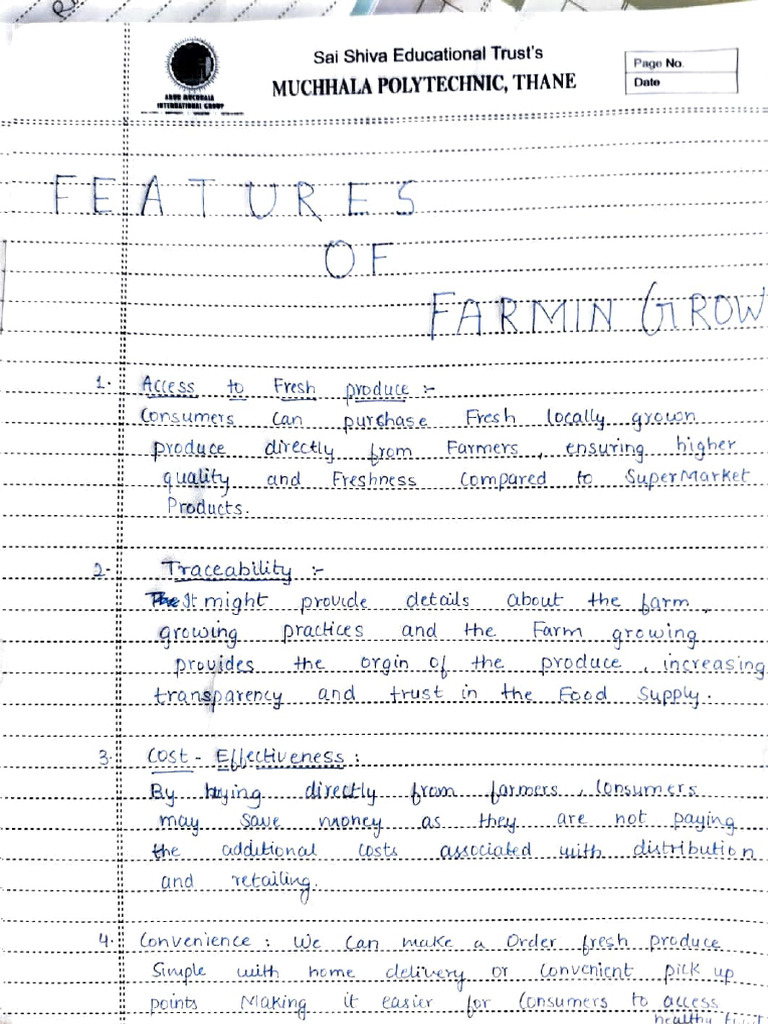 Sai Shiva Educational Trust's
MUCHHALA POLYTECHNIC, THANE
ARUN MUCHHALA
INTERNATIONAL GROUP
Page No.
Date
FEATURES
OF
FARMIN GROW
1. Access to Fresh produce :-
Consumers can purchase Fresh locally grown
produce directly from Farmers, ensuring higher
quality and Freshness compared to SuperMarket
Products.
2. Traceability :-
It might provide details about the farm,
growing practices and the Farm growing
provides the orgin of the produce, increasing
transparency and trust in the Food Supply.
3. Cost - Effectiveness :
By buying directly from farmers, Consumers
may save money as they are not paying
the additional costs associated with distribution
and retailing.
4. Convenience : We can make a Order fresh produce
Simple with home delivery or convenient pick up
points Making it easier for Consumers to access
healthy